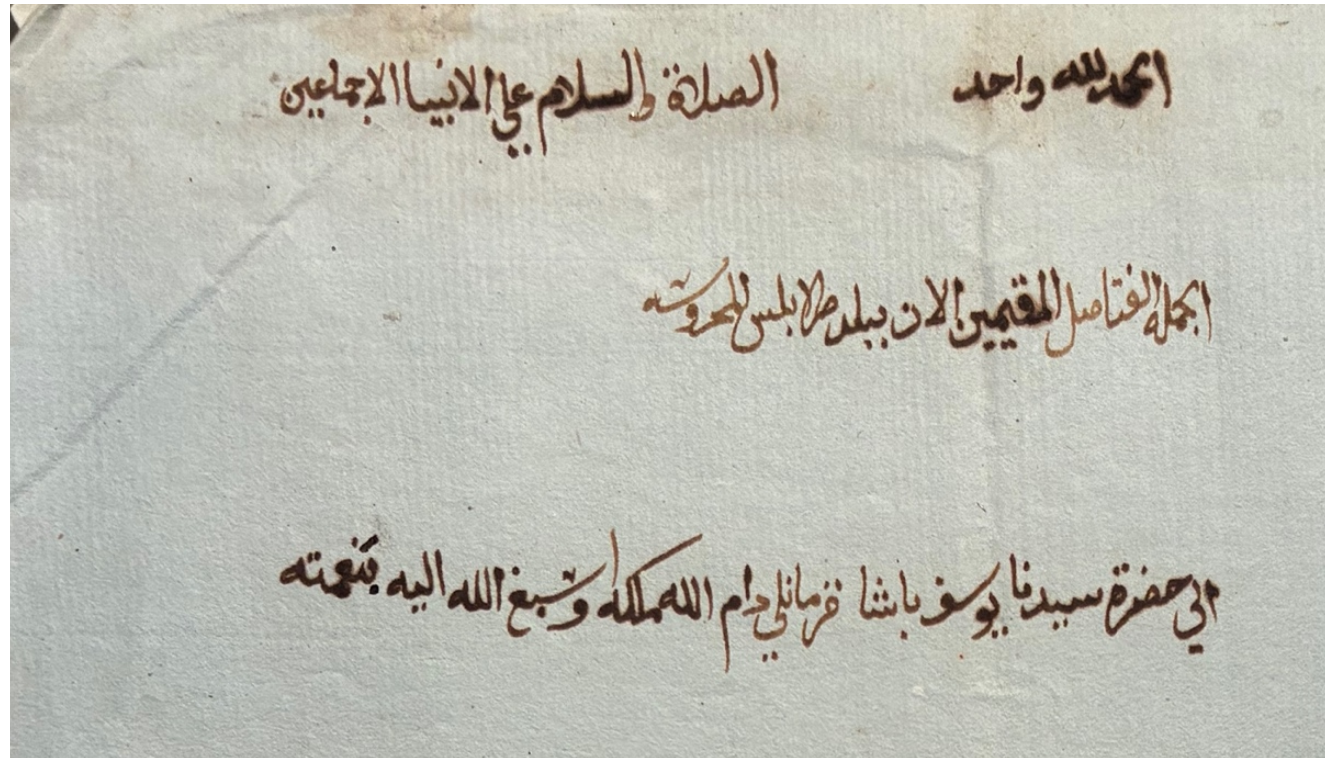 الحمد لله واحد الصلاة والسلام علي الانبيا الاجماعين
الجملة القناصل المقيمين الان ببلد طرابلس المحروسه
الي حضرة سيدنا يوسف باشا قرمانلي دام الله ملكه وسبغ الله اليه بنعمته